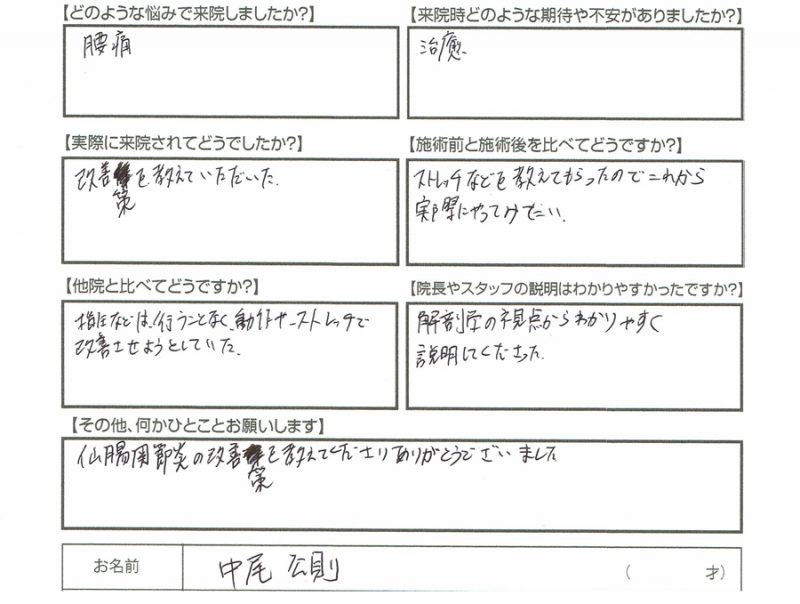 【どのような悩みで来院しましたか?】
腰痛
【来院時どのような期待や不安がありましたか?】
治癒
【実際に来院されてどうでしたか?】
改善策を教えていただいた.
【施術前と施術後を比べてどうですか?】
ストレッチなどを教えてもらったのでこれから
実際にやってみたい.
【他院と比べてどうですか?】
指圧などは、行うことなく、動作やストレッチで
改善させようとしていた.
【院長やスタッフの説明はわかりやすかったですか?】
解剖学の視点からわかりやすく
説明してくださった.
【その他、何かひとことお願いします】
仙腸関節炎の改善策を教えてくださりありがとうございました
お名前
中尾 公則
( 才)